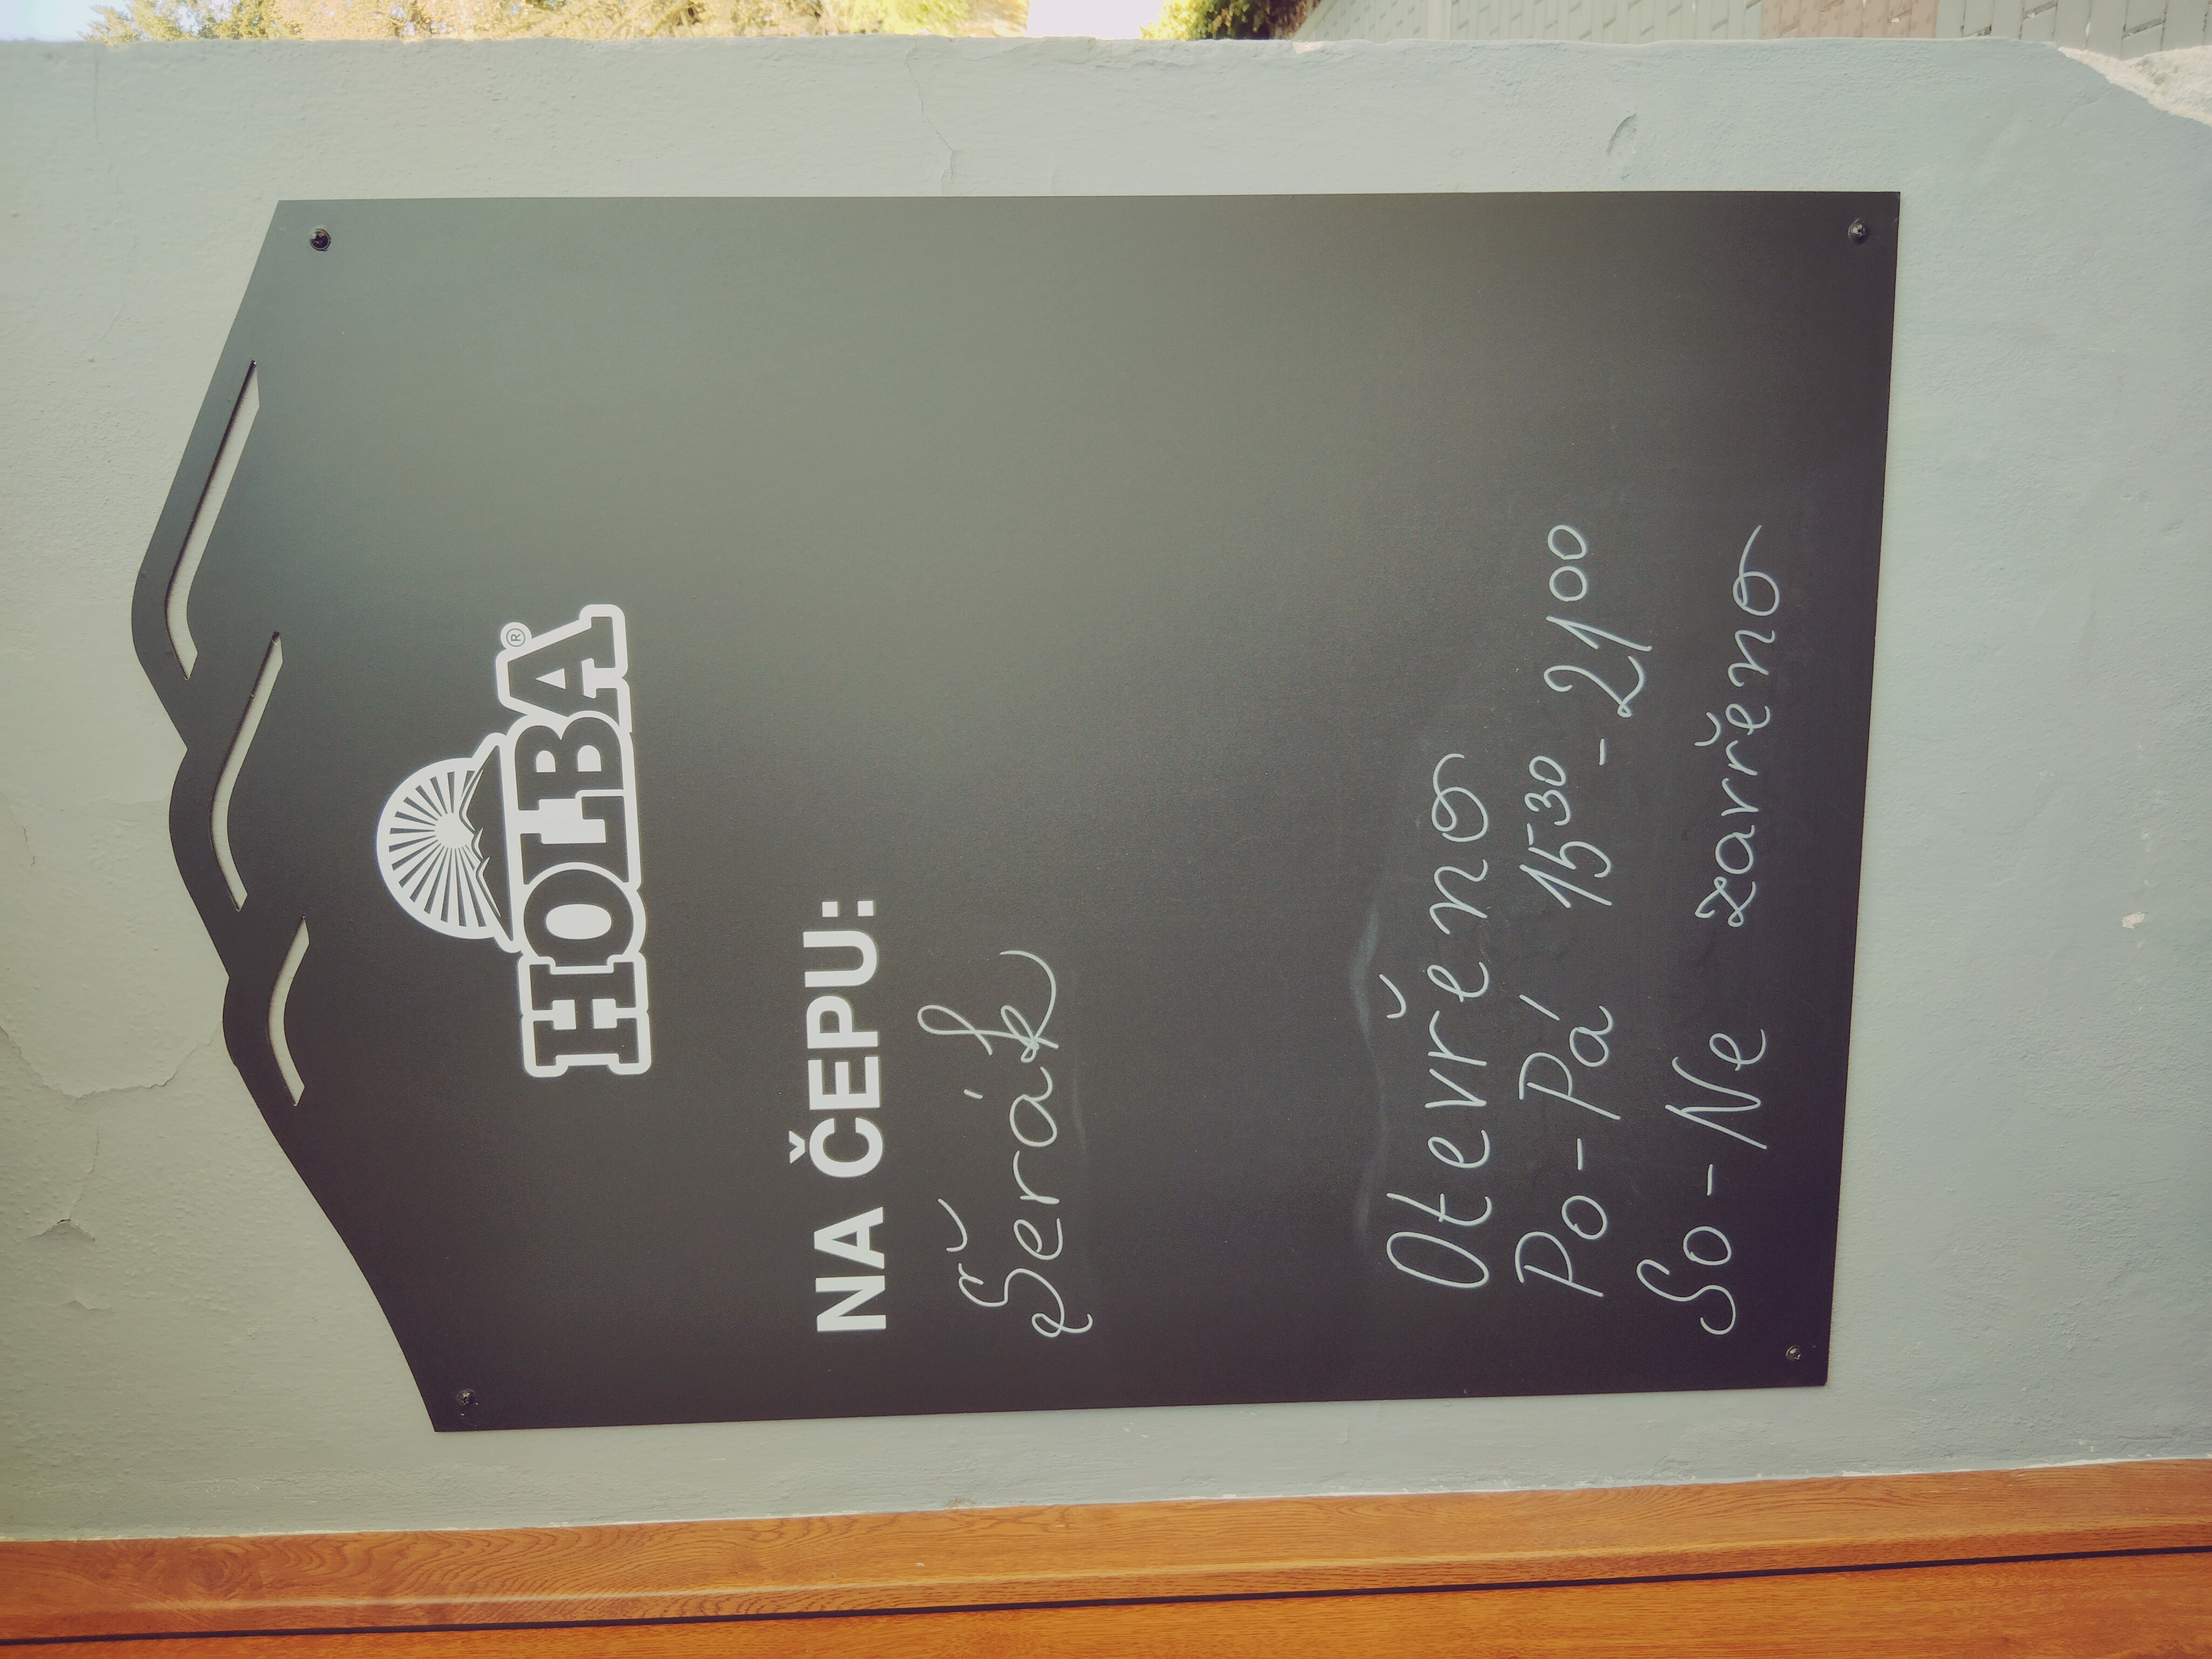 HOLBA®
NA ČEPU:
Šerák
Otevřeno
Po-Pá 15³⁰ - 21⁰⁰
So-Ne zavřeno